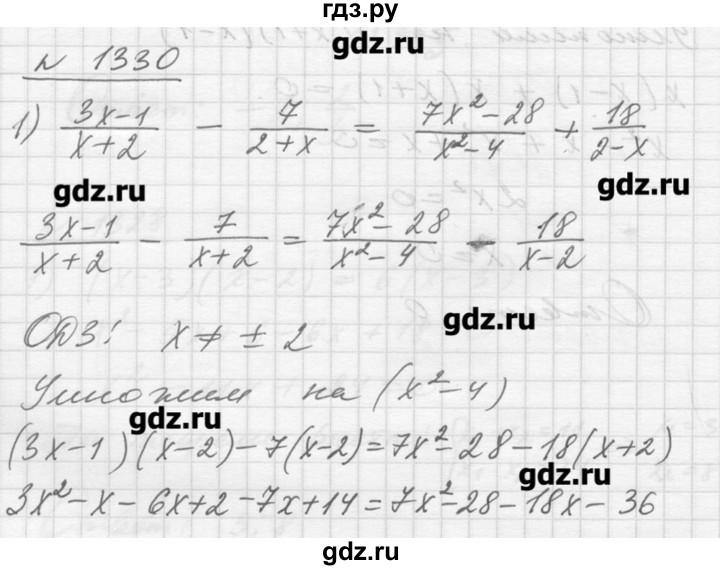 гдз.ру
gdz.ru
№ 1330
1) (3x-1)/(x+2) - 7/(2+x) = (7x²-28)/(x²-4) + 18/(2-x)
gdz.ru gdz.ru
(3x-1)/(x+2) - 7/(x+2) = (7x²-28)/(x²-4) - 18/(x-2)
gdz.ru
ОДЗ! x ≠ ± 2
Умножим на (x²-4)
gdz.ru
(3x-1)(x-2)-7(x-2)=7x²-28-18(x+2)
gdz.ru
3x²-x-6x+2-7x+14=7x²-28-18x-36
gdz.ru